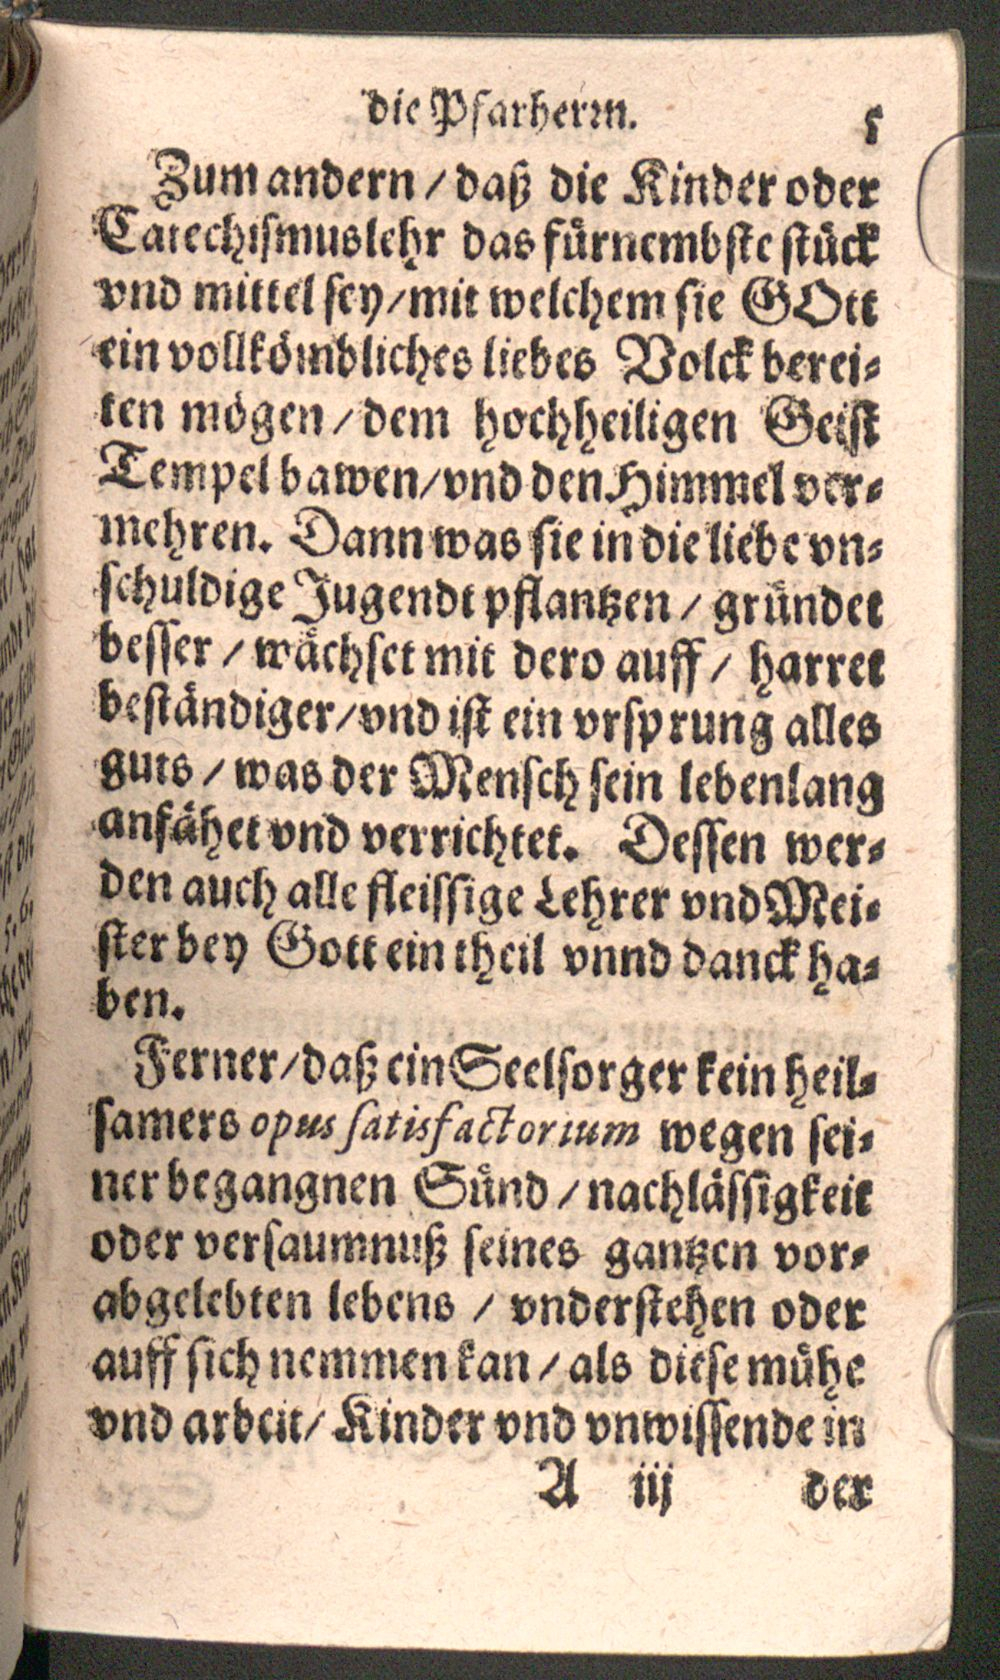 die Pfarherrn.
5
Zum andern / daß die Kinder oder
Catechismuslehr das fürnembste stück
vnd mittel sey / mit welchem sie GOtt
ein vollkömbliches liebes Volck berei-
ten mögen / dem hochheiligen Geist
Tempel bawen / vnd den Himmel ver-
mehren. Dann was sie in die liebe vn-
schuldige Jugendt pflantzen / gründet
besser / wächset mit dero auff / harret
beständiger / vnd ist ein vrsprung alles
guts / was der Mensch sein lebenlang
anfähet vnd verrichtet. Dessen wer-
den auch alle fleissige Lehrer vnd Mei-
ster bey Gott ein theil vnnd danck ha-
ben.
Ferner / daß ein Seelsorger kein heil-
samers opus satisfactorium wegen sei-
ner begangnen Sünd / nachlässigkeit
oder versaumnuß seines gantzen vor-
abgelebten lebens / vnderstehen oder
auff sich nemmen kan / als diese mühe
vnd arbeit / Kinder vnd vnwissende in
A iij der